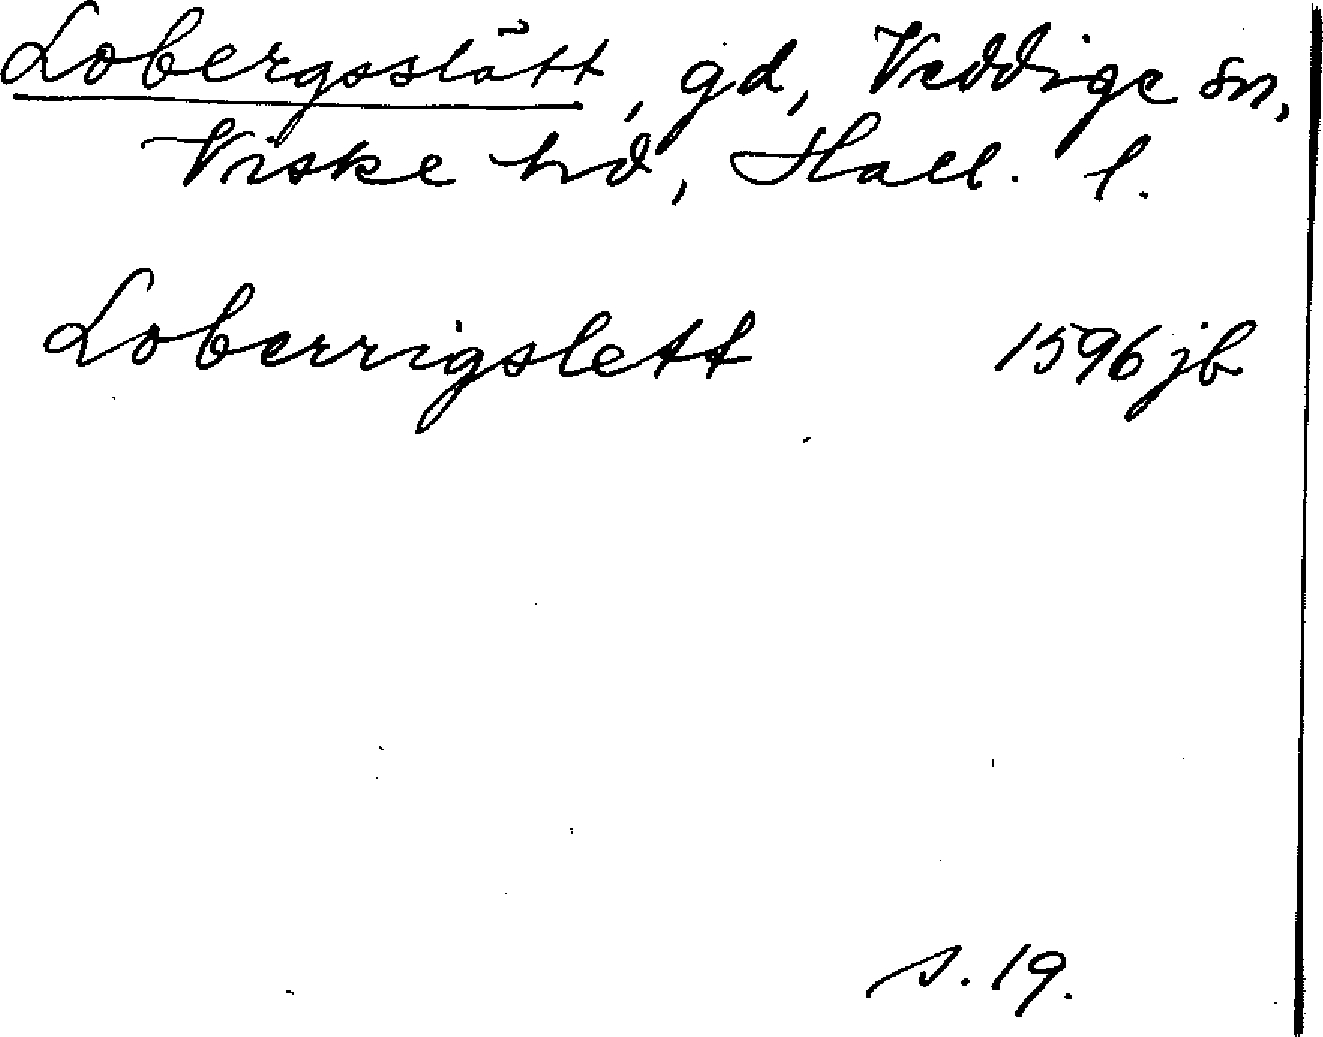 Lobergsslätt, gd, Veddige sn,
Viske hd, Hall. l.
Loberrigslett 1596 jb
s. 19.